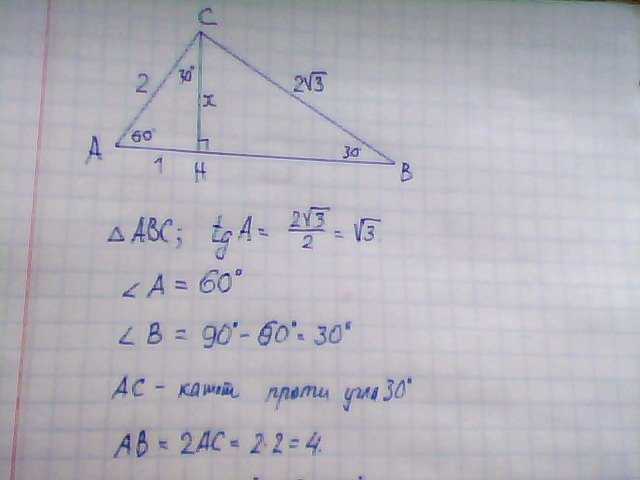 C
2
30°
x
2√3
A
60°
1
H
30°
B
△ ABC; tg A = 2√3/2 = √3
∠ A = 60°
∠ B = 90° - 60° = 30°
AC - катет проти угла 30°
AB = 2AC = 2·2 = 4.